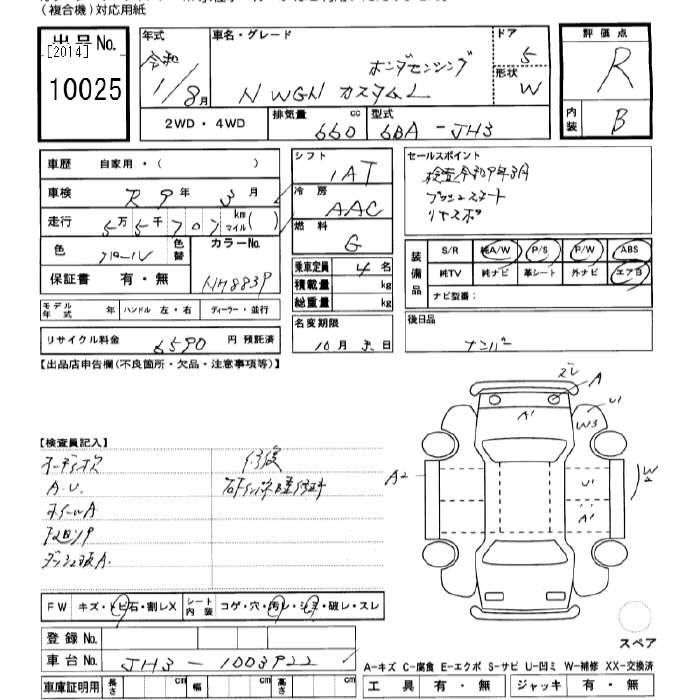 (複合機)対応用紙
出品 No.
[2014]
10025
年式
令和
1/8月
車名・グレード
ホンダセンシング
N WGN カスタム L
ドア
5
形状
W
評価点
R
内装
B
2WD・4WD
排気量 cc
660
型式
6BA-JH3
車歴 自家用・( )
車検 R 9年 3月
走行 5万5千707 km マイル( )
色
色替
カラーNo.
NH883P
保証書 有・無
シフト
IAT
冷房
AAC
燃料
G
乗車定員 4名
積載量 kg
総重量 kg
セールスポイント
検査令和9年3月
プッシュスタート
リヤスポ
装備品
S/R 純A/W P/S P/W ABS
純TV 純ナビ 革シート 外ナビ エアB
ナビ型番:
モデル年式 年 ハンドル 左・右 ディーラー・並行
リサイクル料金 6590 円 預託済
名変期限
10月 末日
後日品
ナンバー
【出品店申告欄(不良箇所・欠品・注意事項等)】
【検査員記入】
オーディオ欠
A.U.
ホイールA
下廻りサビ
ダッシュ板A.
修復
A
U1
A1
W3
A2
U1
A1
W2
FW キズ・トビ石・割レX シート内装 コゲ・穴・汚レ・シミ・破レ・スレ
登録 No.
車台 No. JH3-1003922
車庫証明用 長さ cm 幅 cm 高さ cm
スペア
A-キズ C-腐食 E-エクボ S-サビ U-凹ミ W-補修 XX-交換済
工具 有・無 ジャッキ 有・無